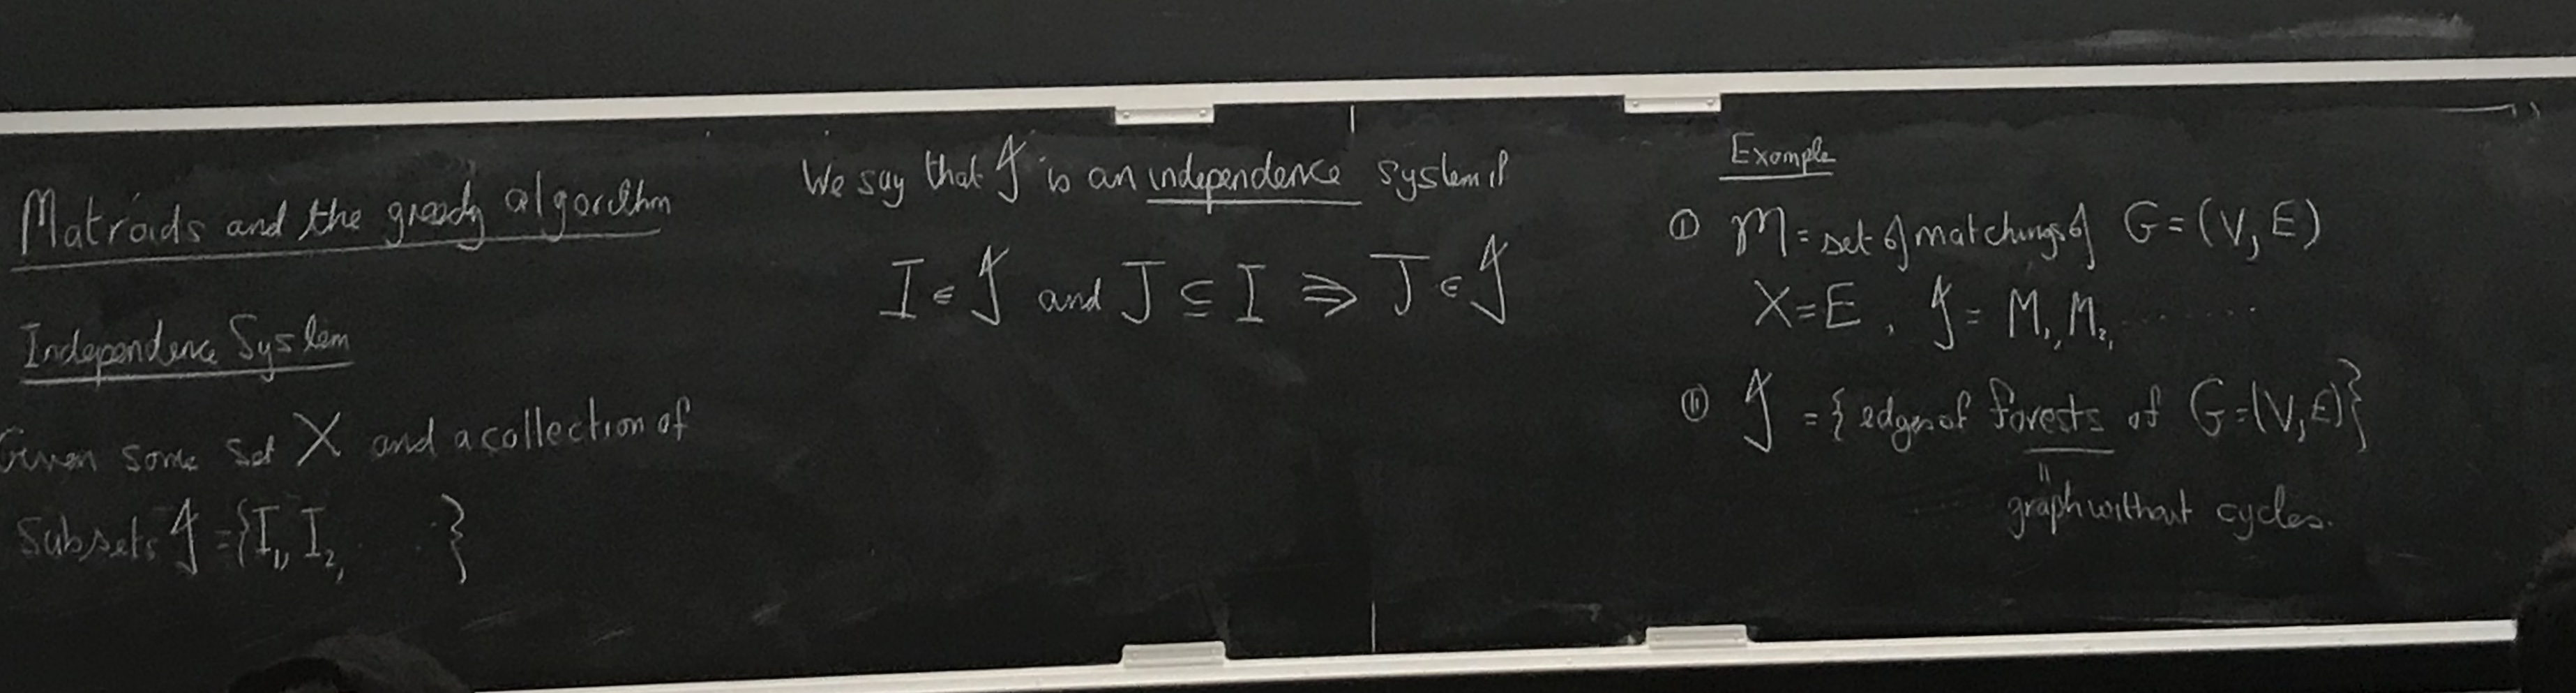 Matroids and the greedy algorithm
Independence System
Given some set X and a collection of
Subsets 𝓘 = {I₁, I₂, . . }
We say that 𝓘 is an independence system if
I ∈ 𝓘 and J ⊆ I ⇒ J ∈ 𝓘
Example
① 𝓜 = set of matchings of G = (V, E)
X = E , 𝓘 = M₁, M₂, . . . . . . .
⑪ 𝓘 = { edges of forests of G = (V, E) }
"
graph without cycles.